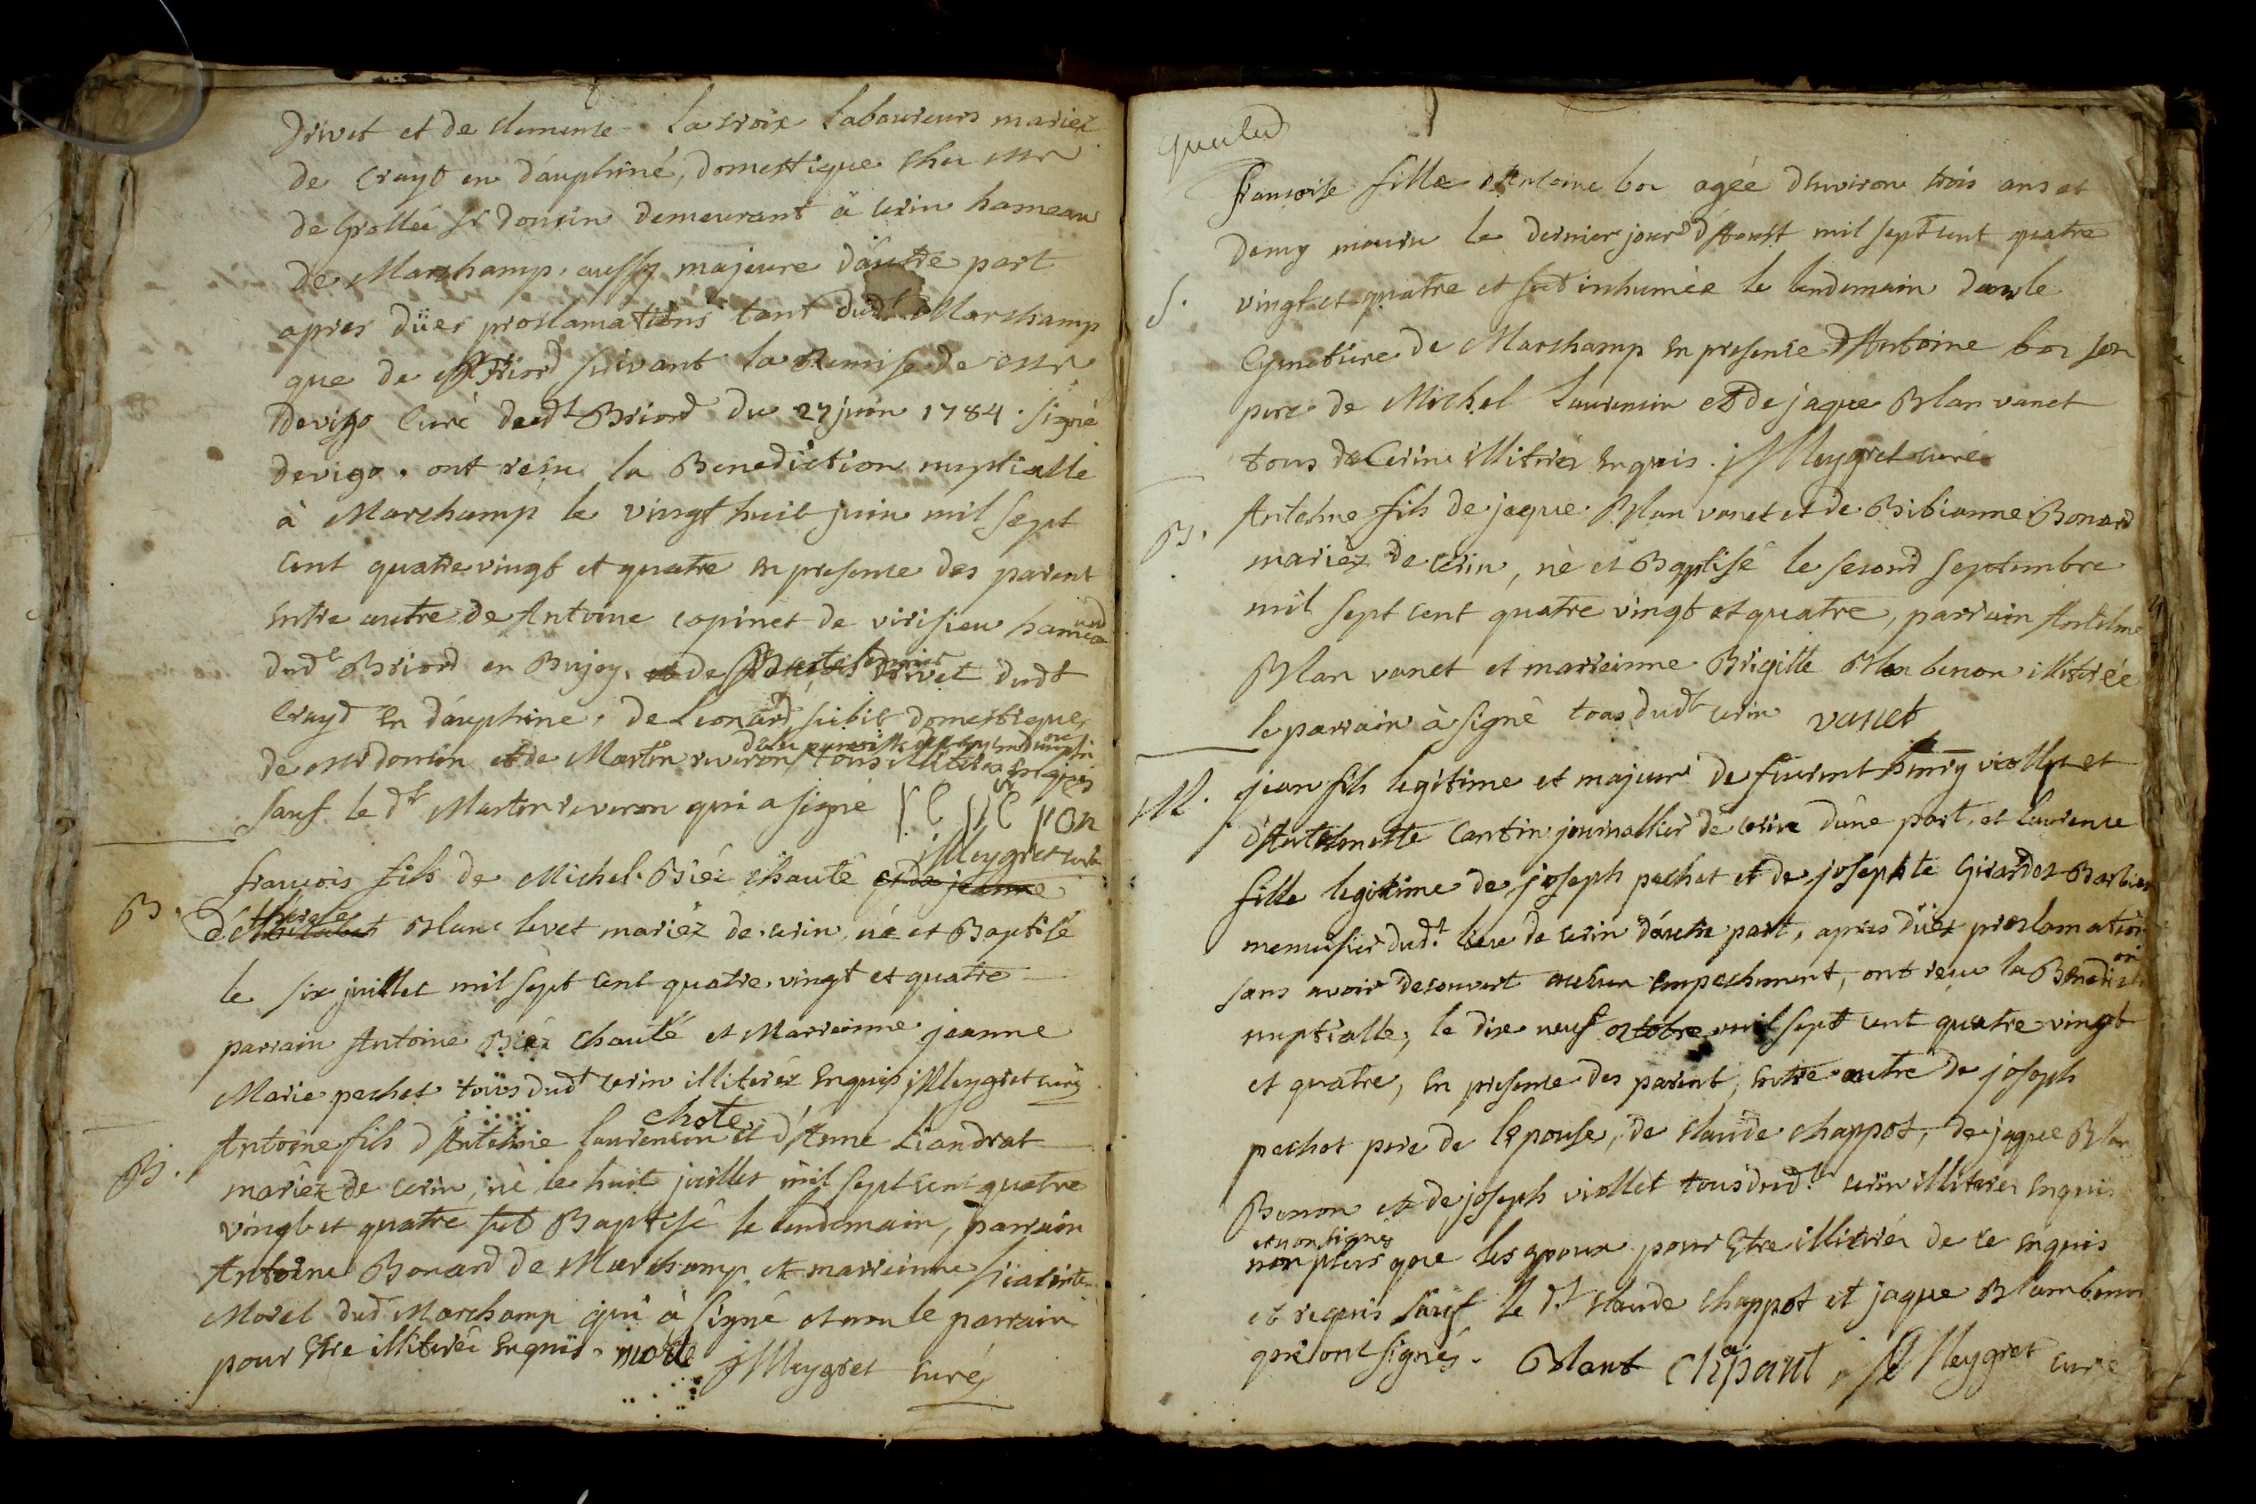 Drivet et de clemence Lacroix Laboureurs mariez
de Crayt en dauphiné, domestique chez mr
de Grollée st doucin demeurant à cerin hameau
de Marchamp, aussy majeure d'autre part
apres düer proclamations tant dudt Marchamp
que de Briord suivant la Remise de mr
Devigo Curé dudt Briord du 27 juin 1784. signé
devigo. ont recu la Benediction nuptialle
à Marchamp le vingt huit juin mil sept
cent quatre vingt et quatre en presence des parent
Entre autre de Antoine copinet de virisieu hameau
dudt Briord en Bujey, de Drivet dudt
Crayd en dauphine, de Leonard subit domestique
de mr doucin et de Martin riveron tous illiterez Enquis
sauf le dt Martin riveron qui a signé
jMeygret curé
B. francois fils de Michel Biéz chauté et de jeanne
de therese Blanc levet mariez de cerin, né et Baptisé
le six juillet mil sept cent quatre vingt et quatre
parrain Antoine Biéz chauté et Marrainne jeanne
Marie pechet tous dudt cerin illiterez Enquis jMeygret curé
chote
B. Antoine fils d'Antelme laurencin et d'Anne Liandrat
mariez de cerin, né le huit juillet mil sept cent quatre
vingt et quatre fut Baptisé le lendemain, parrain
Antoine Bonard de Marchamp et marrainne hiacinte
Morel dudt Marchamp qui à signé et non le parrain
pour Etre illiteré Enquis. morel jMeygret curé
Francoise fille d'Antoine boz agée d'Environ trois ans et
demy mouru le dernier jour d'Aoust mil sept cent quatre
S. vingt et quatre et fut inhumée le lendemain dans le
Cymetiere de Marchamp en presence d'Antoine boz son
pere de Michel Laurencin et de jaque Blan vanet
tous de Cerin illiterez Enquis. jMeygret curé
B. Antelme fils de jaque Blan vanet et de Bibianne Bonard
mariez de cerin, né et Baptisé le second septembre
mil sept cent quatre vingt et quatre, parrain Antelme
Blan vanet et marrainne Brigitte Blan benon illiterée
le parrain à signé tous dudt cerin vanet
M. jean fils legitime et majeur de feu viollet et
d'Antelmette Cantin journallier de cerin d'une part, et Laurence
fille legitime de joseph pechet et de josephte Girardet Barbier
menusier dudt lieu de cerin d'autre part, apres düez proclamation
sans avoir decouvert aucun Empechement, ont recu la Benediction
nuptialle, le dix neuf octobre mil sept cent quatre vingt
et quatre, en presence des parent, Entre autre de joseph
pechet pere de l'epouse, de claude chappot, de jaque Blan
Benon et de joseph viollet tous dudt cerin illiterez Enquis
et non signés
non plus que les epoux pour Etre illiterés de ce Enquis
et requis sauf le dt claude chappot et jaque Blambenon
qui ont signés. Blant chapaut, jMeygret curé